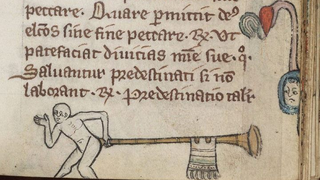 peccare. Quare ꝑmittit deꝰ
elcōs sine fine peccare. ℞. Vt
patefaciat diuicias mīe sue. qͦ.
Saluantur predestinati si nō
laborant. ℞. Predestinatio tali